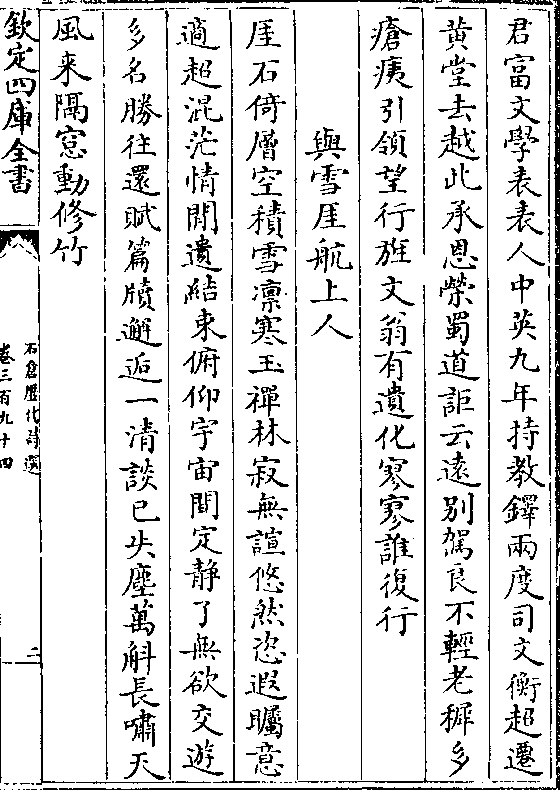 君富文學表表人中英九年持教鐸兩度司文衡超遷
黄堂去越此承恩榮蜀道詎云遠别駕良不輕老穉多
瘡痍引領望行旌文翁有遺化寥寥誰復行
與雪厓航上人
厓石倚層空積雪凛寒玉禪林寂無諠悠然恣遐矚意
適超混茫情閒遺結束俯仰宇宙間定靜了無欲交遊
多名勝往還賦篇牘邂逅一清談已失塵萬斛長嘯天
風来隔窓動修竹
欽定四庫全書
石倉歷代詩選
卷三百九十四
二